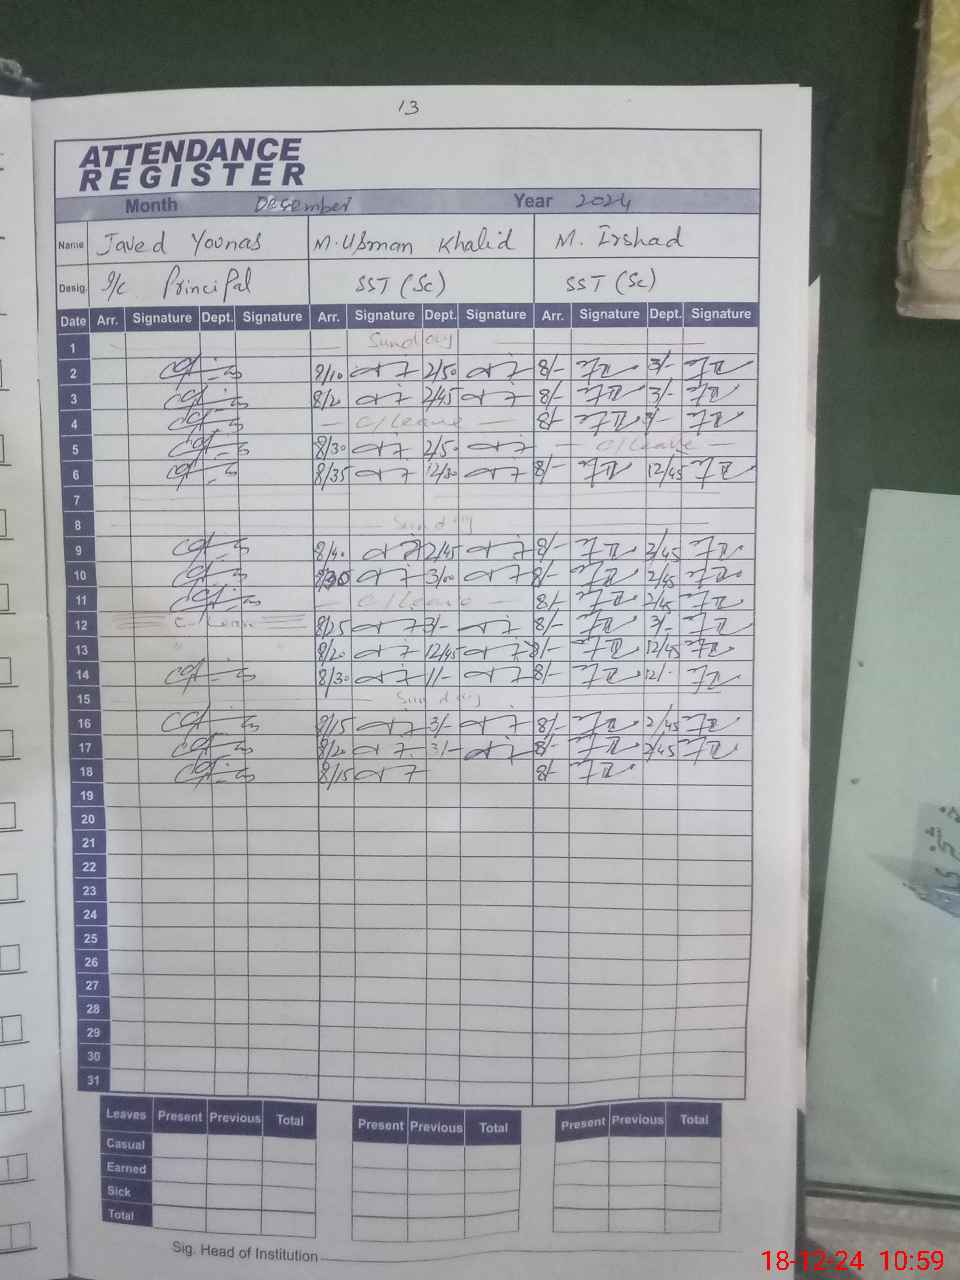 13
ATTENDANCE
REGISTER
Month Desember Year 2024
Name Javed Younas M. Usman Khalid M. Irshad
Desig. I/C Principal SST (Sc) SST (Sc)
Date Arr. Signature Dept. Signature Arr. Signature Dept. Signature Arr. Signature Dept. Signature
1 Sunday
2 8/10 2/50 8/- 3/-
3 8/20 2/45 8/- 3/-
4 - C/Leave - 8/-
5 8/30 2/50 - C/Leave -
6 8/35 12/30 8/- 12/45
7
8 Sunday
9 8/40 2/45 8/- 2/45
10 8/30 3/00 8/- 2/45
11 - C/Leave - 8/- 2/45
12 C/Leave 8/25 3/- 8/- 3/-
13 " 8/20 12/45 8/- 12/45
14 8/30 11/- 8/- 12/-
15 Sunday
16 8/15 3/- 8/- 2/45
17 8/20 3/- 8/- 2/45
18 8/15 8/-
19
20
21
22
23
24
25
26
27
28
29
30
31
Leaves Present Previous Total Present Previous Total Present Previous Total
Casual
Earned
Sick
Total
Sig. Head of Institution
18-12-24 10:59